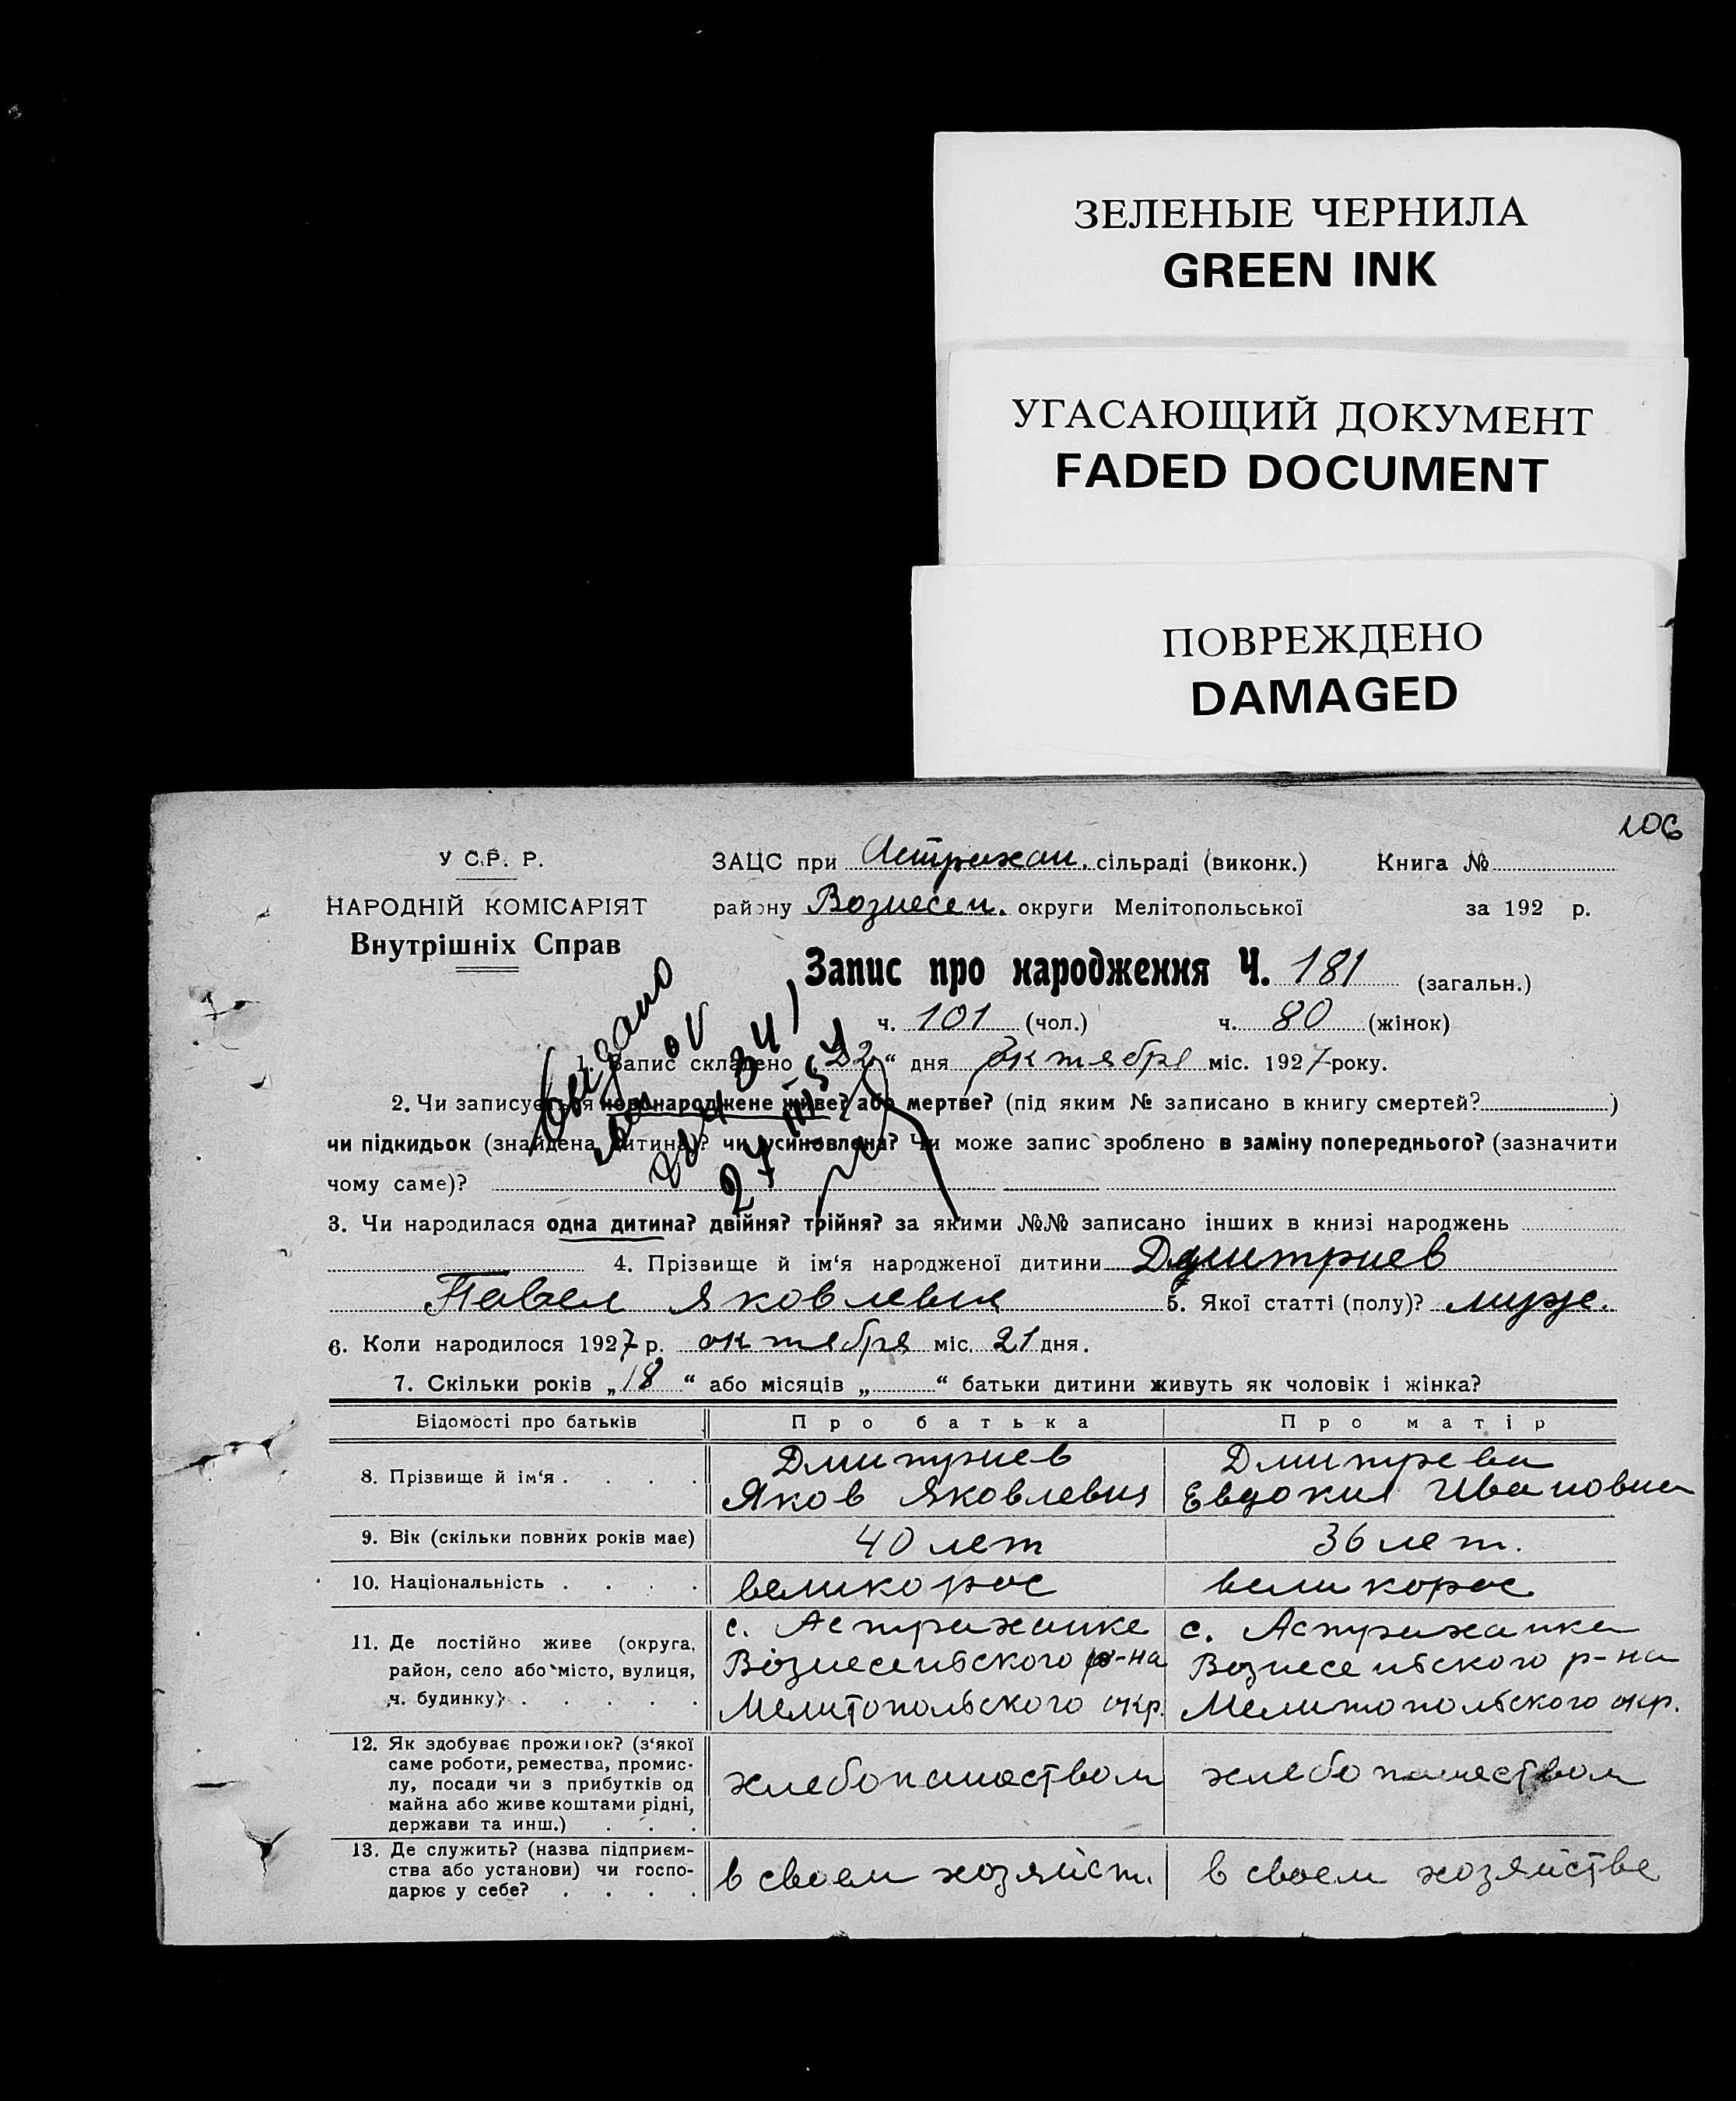 ЗЕЛЕНЫЕ ЧЕРНИЛА
GREEN INK
УГАСАЮЩИЙ ДОКУМЕНТ
FADED DOCUMENT
ПОВРЕЖДЕНО
DAMAGED
106
У С.Р. Р.
НАРОДНІЙ КОМІСАРІЯТ
Внутрішніх Справ
ЗАЦС при Астрахан. сільраді (виконк.) Книга №
району Вознесен. округи Мелітопольської за 192 р.
Запис про народження Ч. 181 (загальн.)
ч. 101 (чол.) ч. 80 (жінок)
1. Запис складено „22“ дня октября міс. 1927 року.
2. Чи записується новонароджене живе? або мертве? (під яким № записано в книгу смертей? )
чи підкидьок (знайдена дитина)? чи усиновлена? Чи може запис зроблено в заміну попереднього? (зазначити
чому саме)?
Выдано
3. Чи народилася одна дитина? двійня? трійня? за якими №№ записано інших в книзі народжень
4. Прізвище й ім‘я народженої дитини Дмитриев
Павел Яковлевич 5. Якої статті (полу)? мужс.
6. Коли народилося 1927 р. октября міс. 21 дня.
7. Скільки років „18“ або місяців „ “ батьки дитини живуть як чоловік і жінка?
Відомості про батьків Про батька Про матір
8. Прізвище й ім‘я . . . .
Дмитриев
Яков Яковлевич
Дмитрева
Евдокия Ивановна
9. Вік (скільки повних років має) 40 лет 36 лет.
10. Національність . . . . великорос великорос
11. Де постійно живе (округа,
район, село або місто, вулиця,
ч. будинку) . . . . .
с. Астраханке
Вознесенского р-на
Мелитопольского окр.
с. Астраханка
Вознесенского р-на
Мелитопольского окр.
12. Як здобуває прожиток? (з‘якої
саме роботи, ремества, промис-
лу, посади чи з прибутків од
майна або живе коштами рідні,
держави та инш.) . . .
хлебопашеством
хлебопашеством
13. Де служить? (назва підприєм-
ства або установи) чи госпо-
дарює у себе? . . . .
в своем хозяйст.
в своем хозяйстве